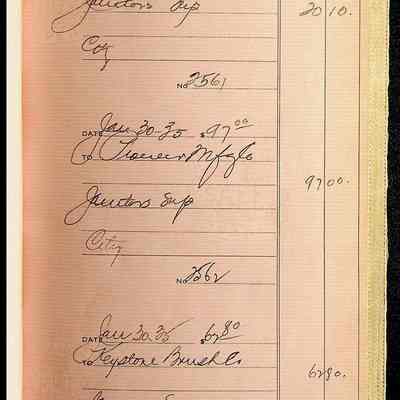 Janitors Sup 20 10.
City
No 2561
DATE Jan 30-35 $97 00
TO Pioneer Mfg Co
97 00.
Janitors Sup
City
No 2562
DATE Jan 30-35 $62 80
TO Keystone Brush Co
62 80.